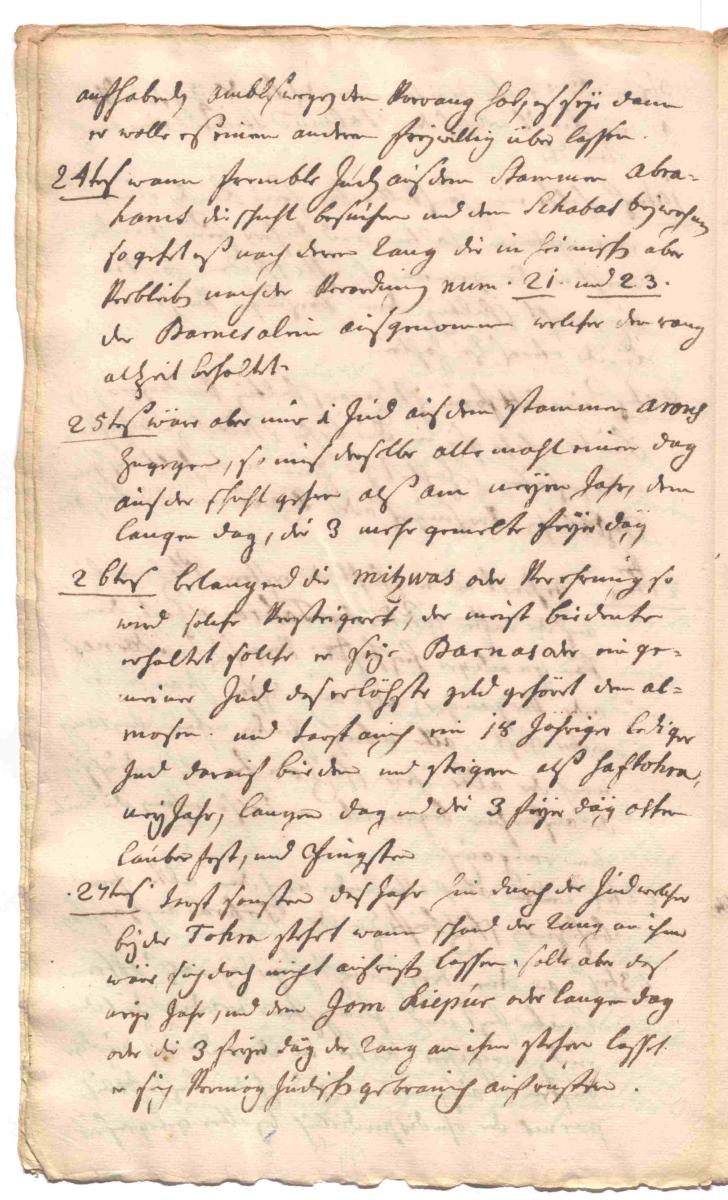 aufhabenden ambts wegen den Vorrang hab, es seye dann
er wolle es einem anderen freywillig über lassen.
24tes wann frembde Juden aus dem Stammen abra-
hams die schuhl besuchen und dem Schabas beywohnen
so gehet es nach deren Rang die in heimisch aber
Verbleiben nach der Verordnung num. 21. und 23.
der Barnes alein ausgenommen welcher den rang
alzeit behaltet.
25tes wäre aber nur 1 Jud aus dem stammen arons
zugegen, so mus derselbe alle mahl einen dag
aus der schuhl gehen als am neyen Jahr, dem
langen dag, die 3 mehr gemelte feyer däg
26tes belangend die mitzwas oder Verehrung so
wird solche Versteigeret, der meist biedente
erhaltet solche er seye Barnas oder ein ge-
meiner Jud das erlöhste geld gehöret dem al-
mosen. und darf auch ein 18 Jähriger lediger
Jud darauf bieden und steigern als haftohra,
ney Jahr, langen dag und die 3 feyer däg ostern
lauberfest, und Pfingsten
27tens darf sonsten das Jahr hin durch der Jud welcher
bey der Tohra stehet wann schond der Rang an ihm
wäre sich doch nicht aufrufen lassen. solte aber das
neye Jahr, und dem Jom Kiepur oder langen dag
oder die 3 feyer däg der Rang an ihm stehen lasset
er sich Vermög Jüdisch gebrauch aufrufen.